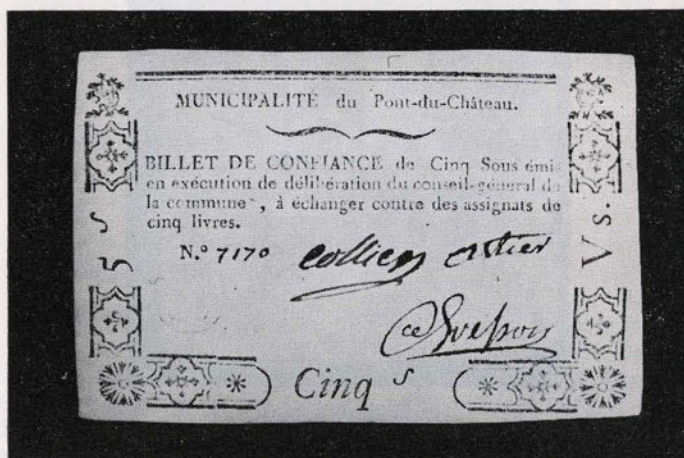 MUNICIPALITÉ du Pont-du-Château.
BILLET DE CONFIANCE de Cinq Sous émi
en exécution de délibération du conseil-général de
la commune, à échanger contre des assignats de
cinq livres.
N.° 7170
5 S
V s.
Cinq s